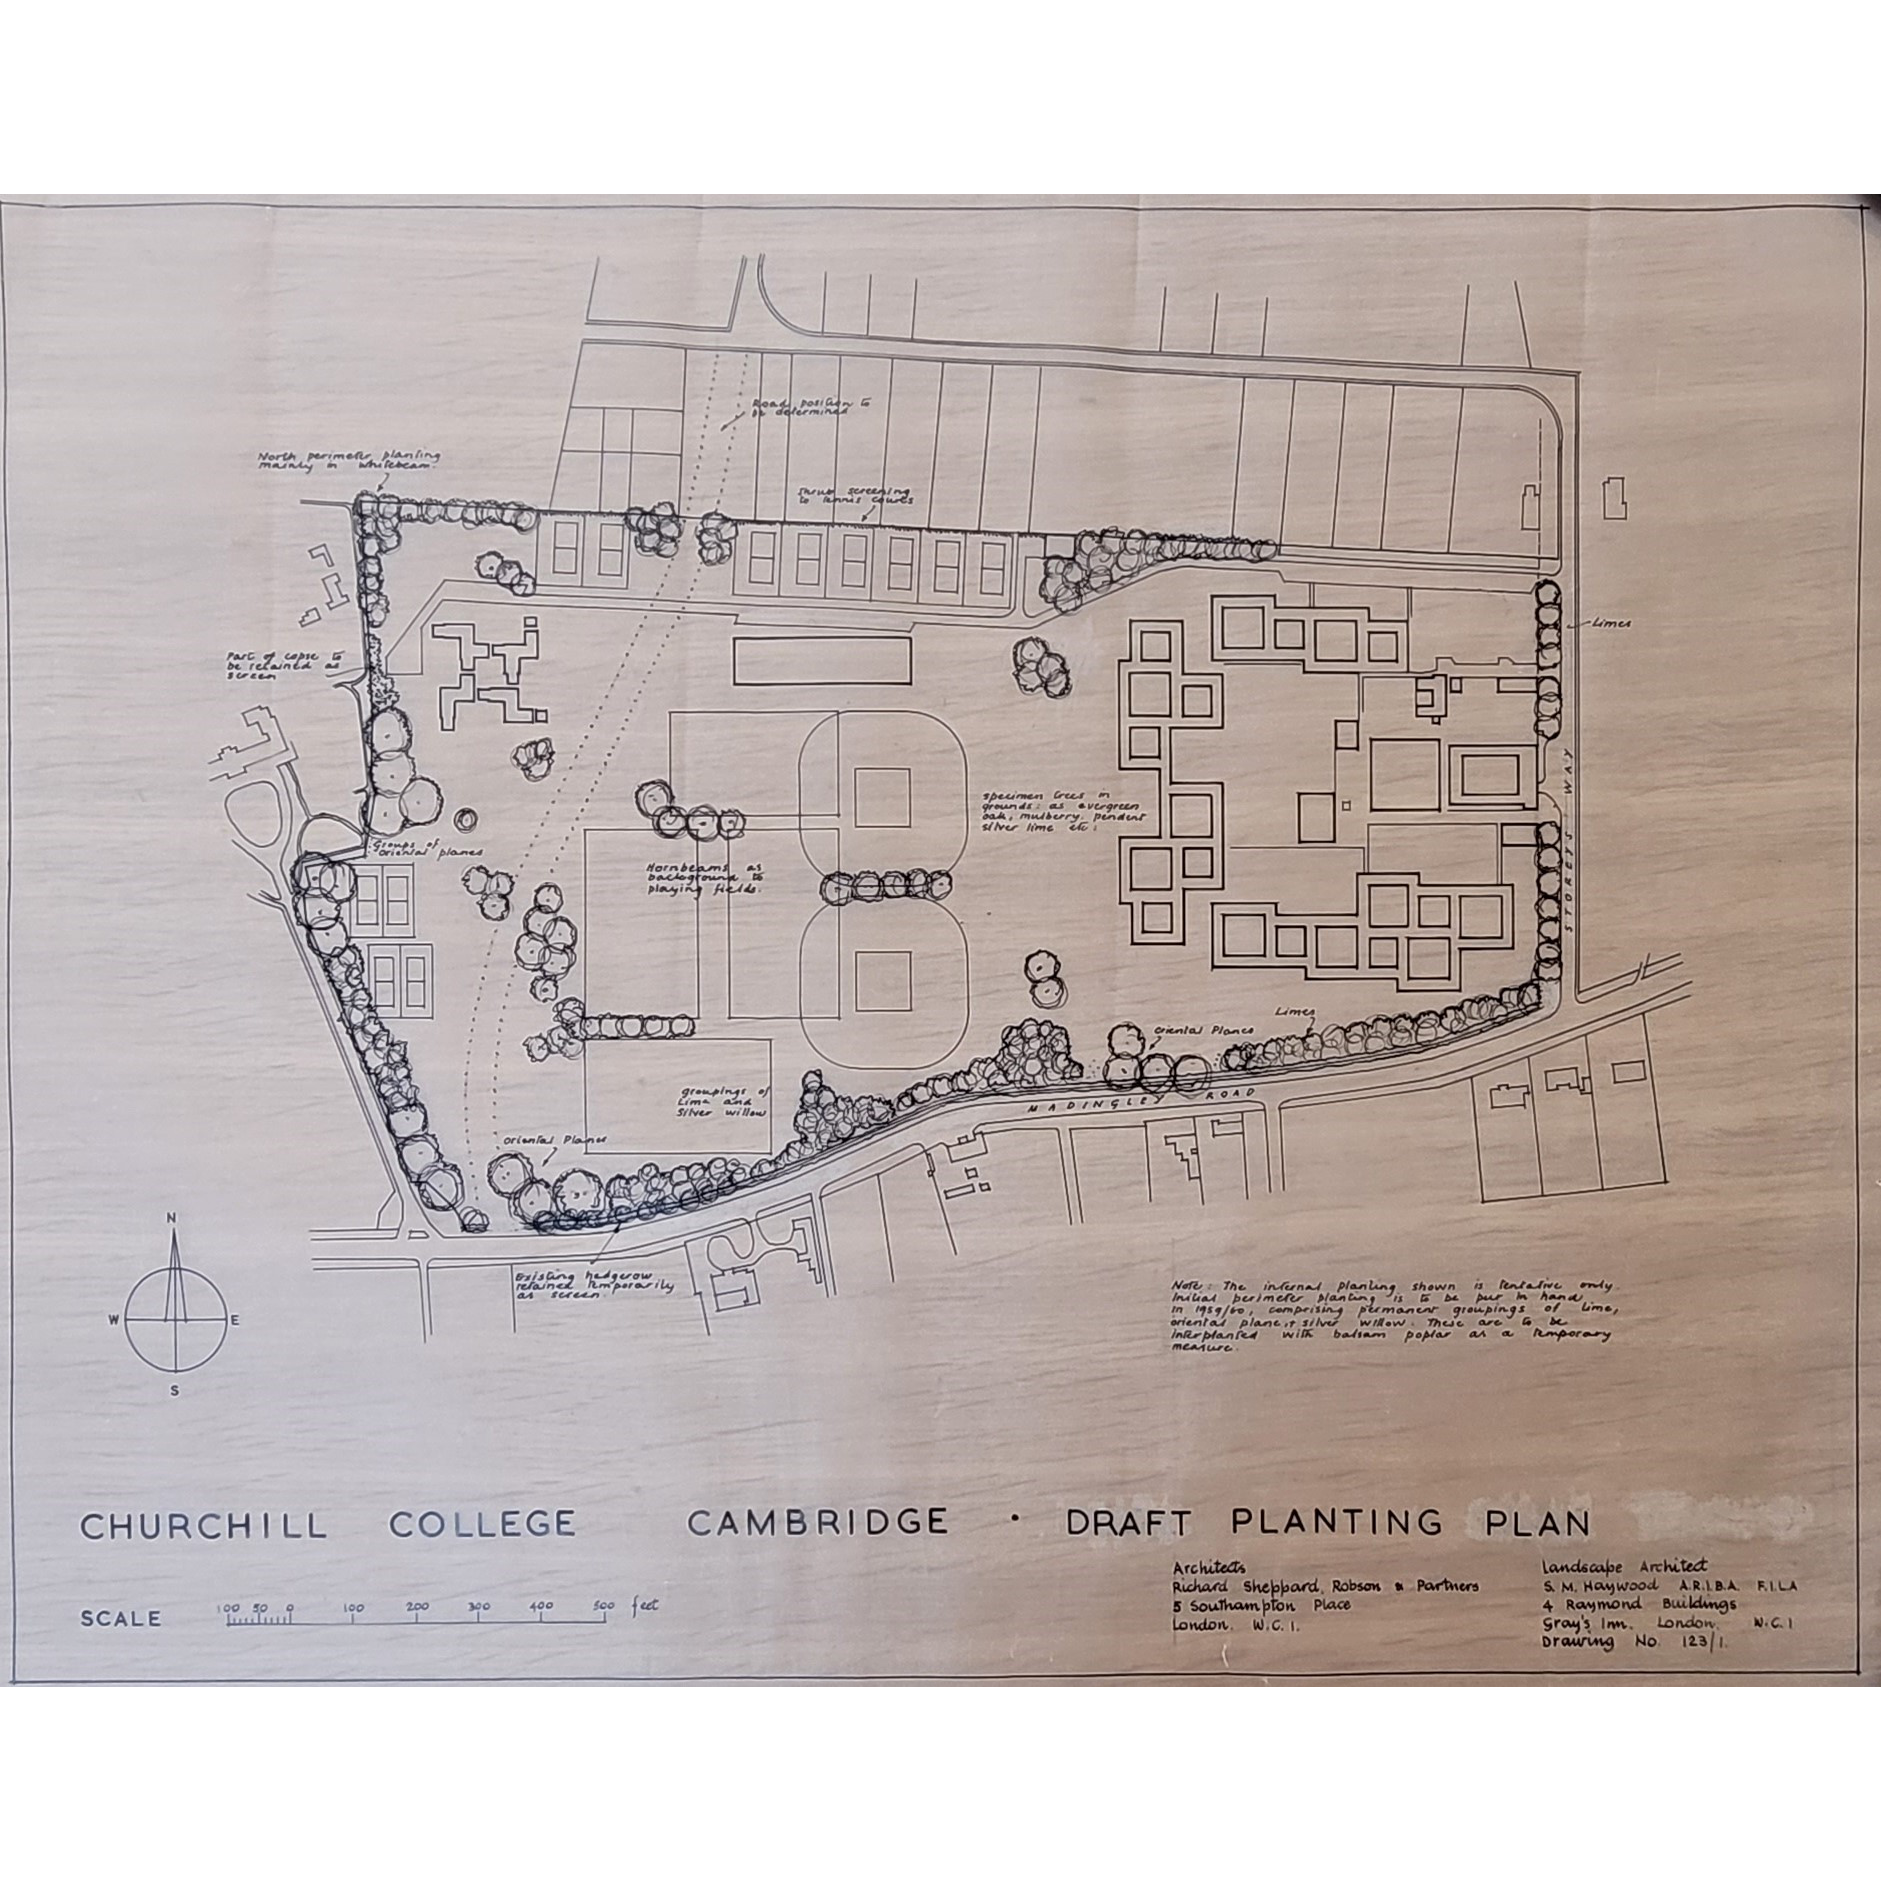 Road position to
be determined
North perimeter planting
mainly in whitebeam.
Shrub screening
to tennis courts
Limes
Part of copse to
be retained as
screen
STOREYS WAY
specimen trees in
grounds: as evergreen
oak, mulberry, pendent
silver lime etc:
Groups of
oriental planes
Hornbeams as
background to
playing fields.
Limes
oriental Planes
groupings of
Lime and
silver willow
MADINGLEY ROAD
oriental Planes
Existing hedgerow
retained temporarily
as screen.
N
W E
S
Note: The internal planting shown is tentative only.
Initial perimeter planting is to be put in hand
in 1959/60, comprising permanent groupings of lime,
oriental plane, & silver willow. These are to be
interplanted with balsam poplar as a temporary
measure.
CHURCHILL COLLEGE CAMBRIDGE · DRAFT PLANTING PLAN
Architects
Richard Sheppard, Robson & Partners
5 Southampton Place
London. W.C.1.
Landscape Architect
S. M. Haywood A.R.I.B.A. F.I.L.A
4 Raymond Buildings
Gray's Inn. London. W.C.1
Drawing No. 123/1.
SCALE 100 50 0 100 200 300 400 500 feet